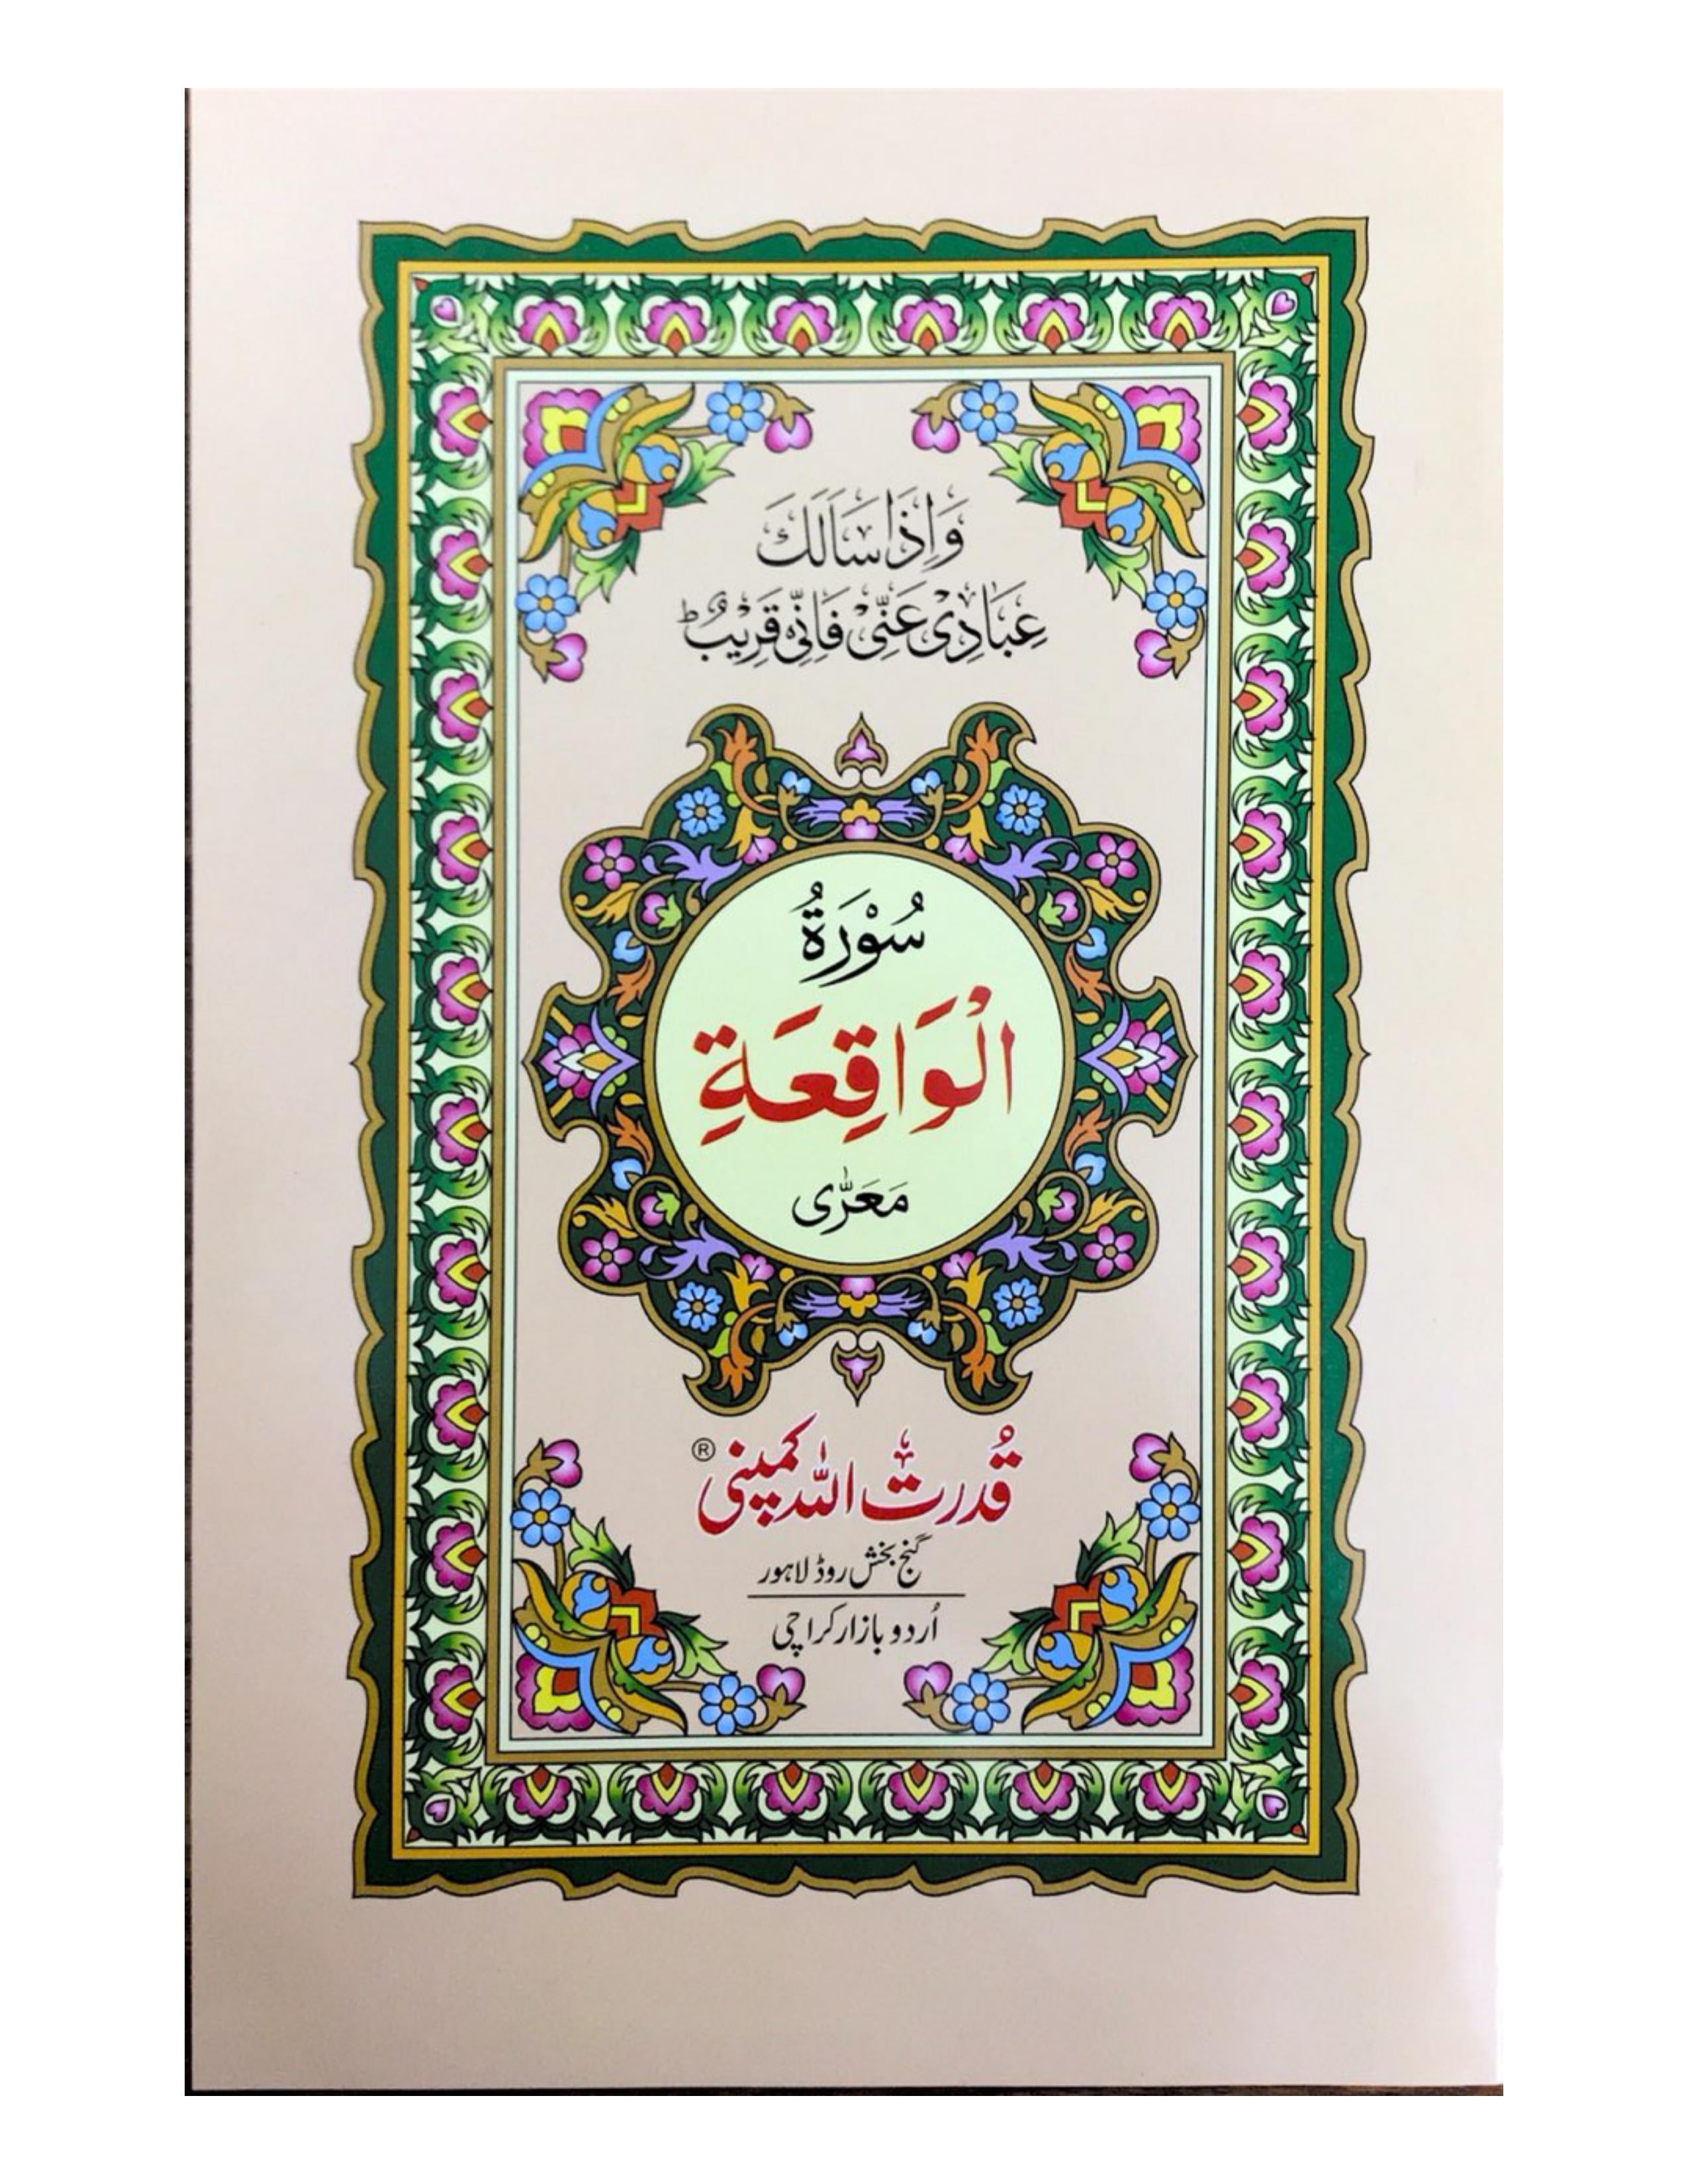 وَاِذَا سَاَلَكَ
عِبَادِیْ عَنِّیْ فَاِنِّیْ قَرِیْبٌ ؕ
سُوْرَةُ
الْوَاقِعَةِ
مَعَرّٰی
قُدرتُ اللہ کمپنی ®
گنج بخش روڈ لاہور
اُردو بازار کراچی